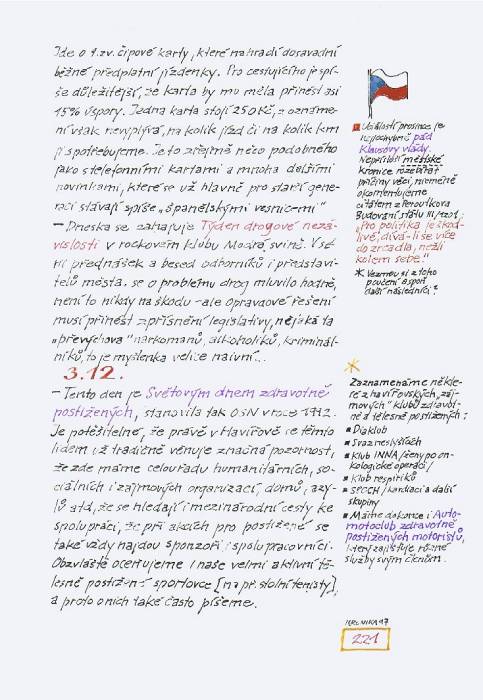 Jde o t.zv. čipové karty, které nahradí dosavadní
běžné předplatní jízdenky. Pro cestujícího je spí-
še důležitější, že karta by mu měla přinést asi
15% úspory. Jedna karta stojí 250 Kč, z oznáme-
ní však nevyplývá, na kolik jízd či na kolik km
ji spotřebujeme. Je to zřejmě něco podobného
jako s telefonními kartami a mnoha dalšími
novinkami, které se už hlavně pro starší gene-
raci stávají spíše „španělskými vesnicemi"
– Dneska se zahajuje Týden drogové nezá-
vislosti v rockovém klubu Modrá svině. V sé-
rii přednášek a besed odborníků i představi-
telů města. se o problému drog mluvilo hodně,
není to nikdy na škodu – ale opravdové řešení
musí přinést zpřísnění legislativy, nějaká ta
„převýchova" narkomanů, alkoholiků, kriminál-
níků, to je myšlenka velice naivní...
3.12.
– Tento den je Světovým dnem zdravotně
postižených, stanovila tak OSN v roce 1992.
Je potěšitelné, že právě v Havířově se těmto
lidem už tradičně věnuje značná pozornost,
že zde máme celou řadu humanitárních, so-
ciálních i zájmových organizací, domů, azy-
lů atd, že se hledají i mezinárodní cesty ke
spolupráci, že při akcích pro postižené se
také vždy najdou sponzoři i spolupracovníci.
Obzvláště oceňujeme i naše velmi aktivní tě-
lesně postižené sportovce [na př. stolní tenisty],
a proto o nich také často píšeme.
Událostí prosince je
nepochybně pád
Klausovy vlády.
Nepřísluší městské
kronice rozebírat
příčiny věci, nicméně
okomentujeme
citátem z Peroutkova
Budování státu III/1201:
„Pro politika je škod-
livé, dívá-li se více
do zrcadla, nežli
kolem sebe."
* Vezmou si z toho
poučení aspoň
další následníci?
*
Zaznamenáme někte-
ré z havířovských „záj-
mových" klubů zdravot-
ně a tělesně postižených:
▪ Diaklub
▪ Svaz neslyšících
▪ Klub INNA/ženy po on-
kologické operaci/
▪ Klub respiriků
▪ SPCCH/kardiaci a další
skupiny
▪ Máme dokonce i Auto-
motoclub zdravotně
postižených motoristů,
který zajišťuje různé
služby svým členům.
KRONIKA 97
221